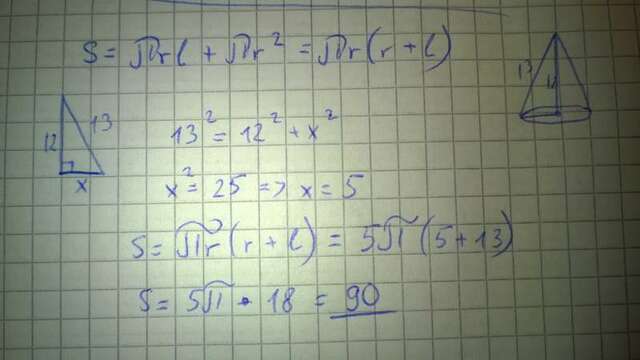 S = πrl + πr² = πr(r + l)
13
12
12
13
x
13² = 12² + x²
x² = 25 => x = 5
S = πr(r + l) = 5π(5 + 13)
S = 5π · 18 = 90